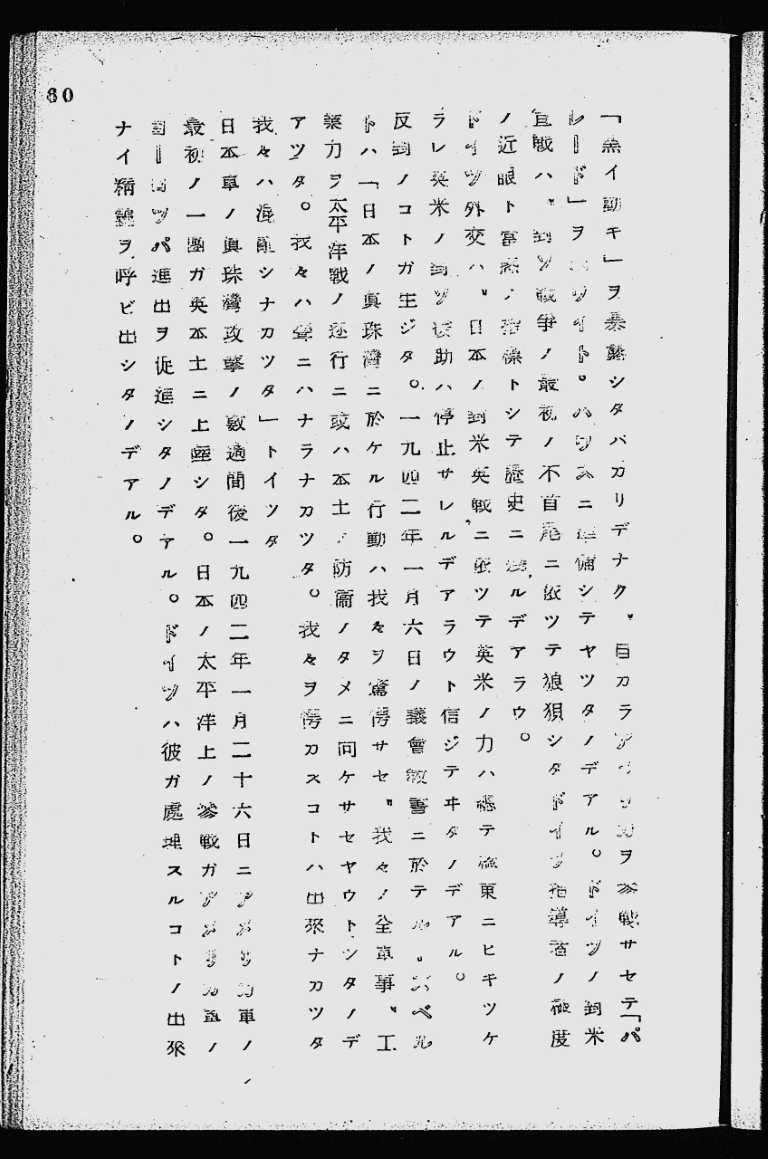 80
「無イ動キ」ヲ暴露シタバカリデナク、自カラアメリカヲ參戰サセテ「パ
レード」ヲ ハワニ準備シテヤツタノデアル。ドイツノ對米
宣戰ハ、對ソ戰爭ノ最初ノ不首尾ニ依ツテ狼狽シタドイツ指導者ノ極度
ノ近眼ト トシテ歷史ニ ルデアラウ。
ドイツ外交ハ、日本ノ對米英戰ニ依ツテ英米ノ力ハ總テ極東ニヒキツケ
ラレ英米ノ對ソ援助ハ停止サレルデアラウト信ジテヰタノデアル。
反對ノコトガ生ジタ。一九四二年一月六日ノ議會敎書ニ於テル、ズベル
トハ「日本ノ眞珠灣ニ於ケル行動ハ我々ヲ驚愕サセ、我々ノ全軍事、工
業力ヲ太平洋戰ノ遂行ニ或ハ本土ノ防衞ノタメニ向ケサセヤウトシタノデ
アツタ。我々ハ ニハナラナカツタ。我々ヲ愕カスコトハ出來ナカツタ
我々ハ混亂シナカツタ」トイツタ
日本軍ノ眞珠灣攻擊ノ數週間後一九四二年一月二十六日ニアメリカ軍ノ
最初ノ一團ガ英本土ニ上陸シタ。日本ノ太平洋上ノ參戰ガアメリカ軍ノ
ヨーロツパ進出ヲ促進シタノデアル。ドイツハ彼ガ處理スルコトノ出來
ナイ精靈ヲ呼ビ出シタノデアル。